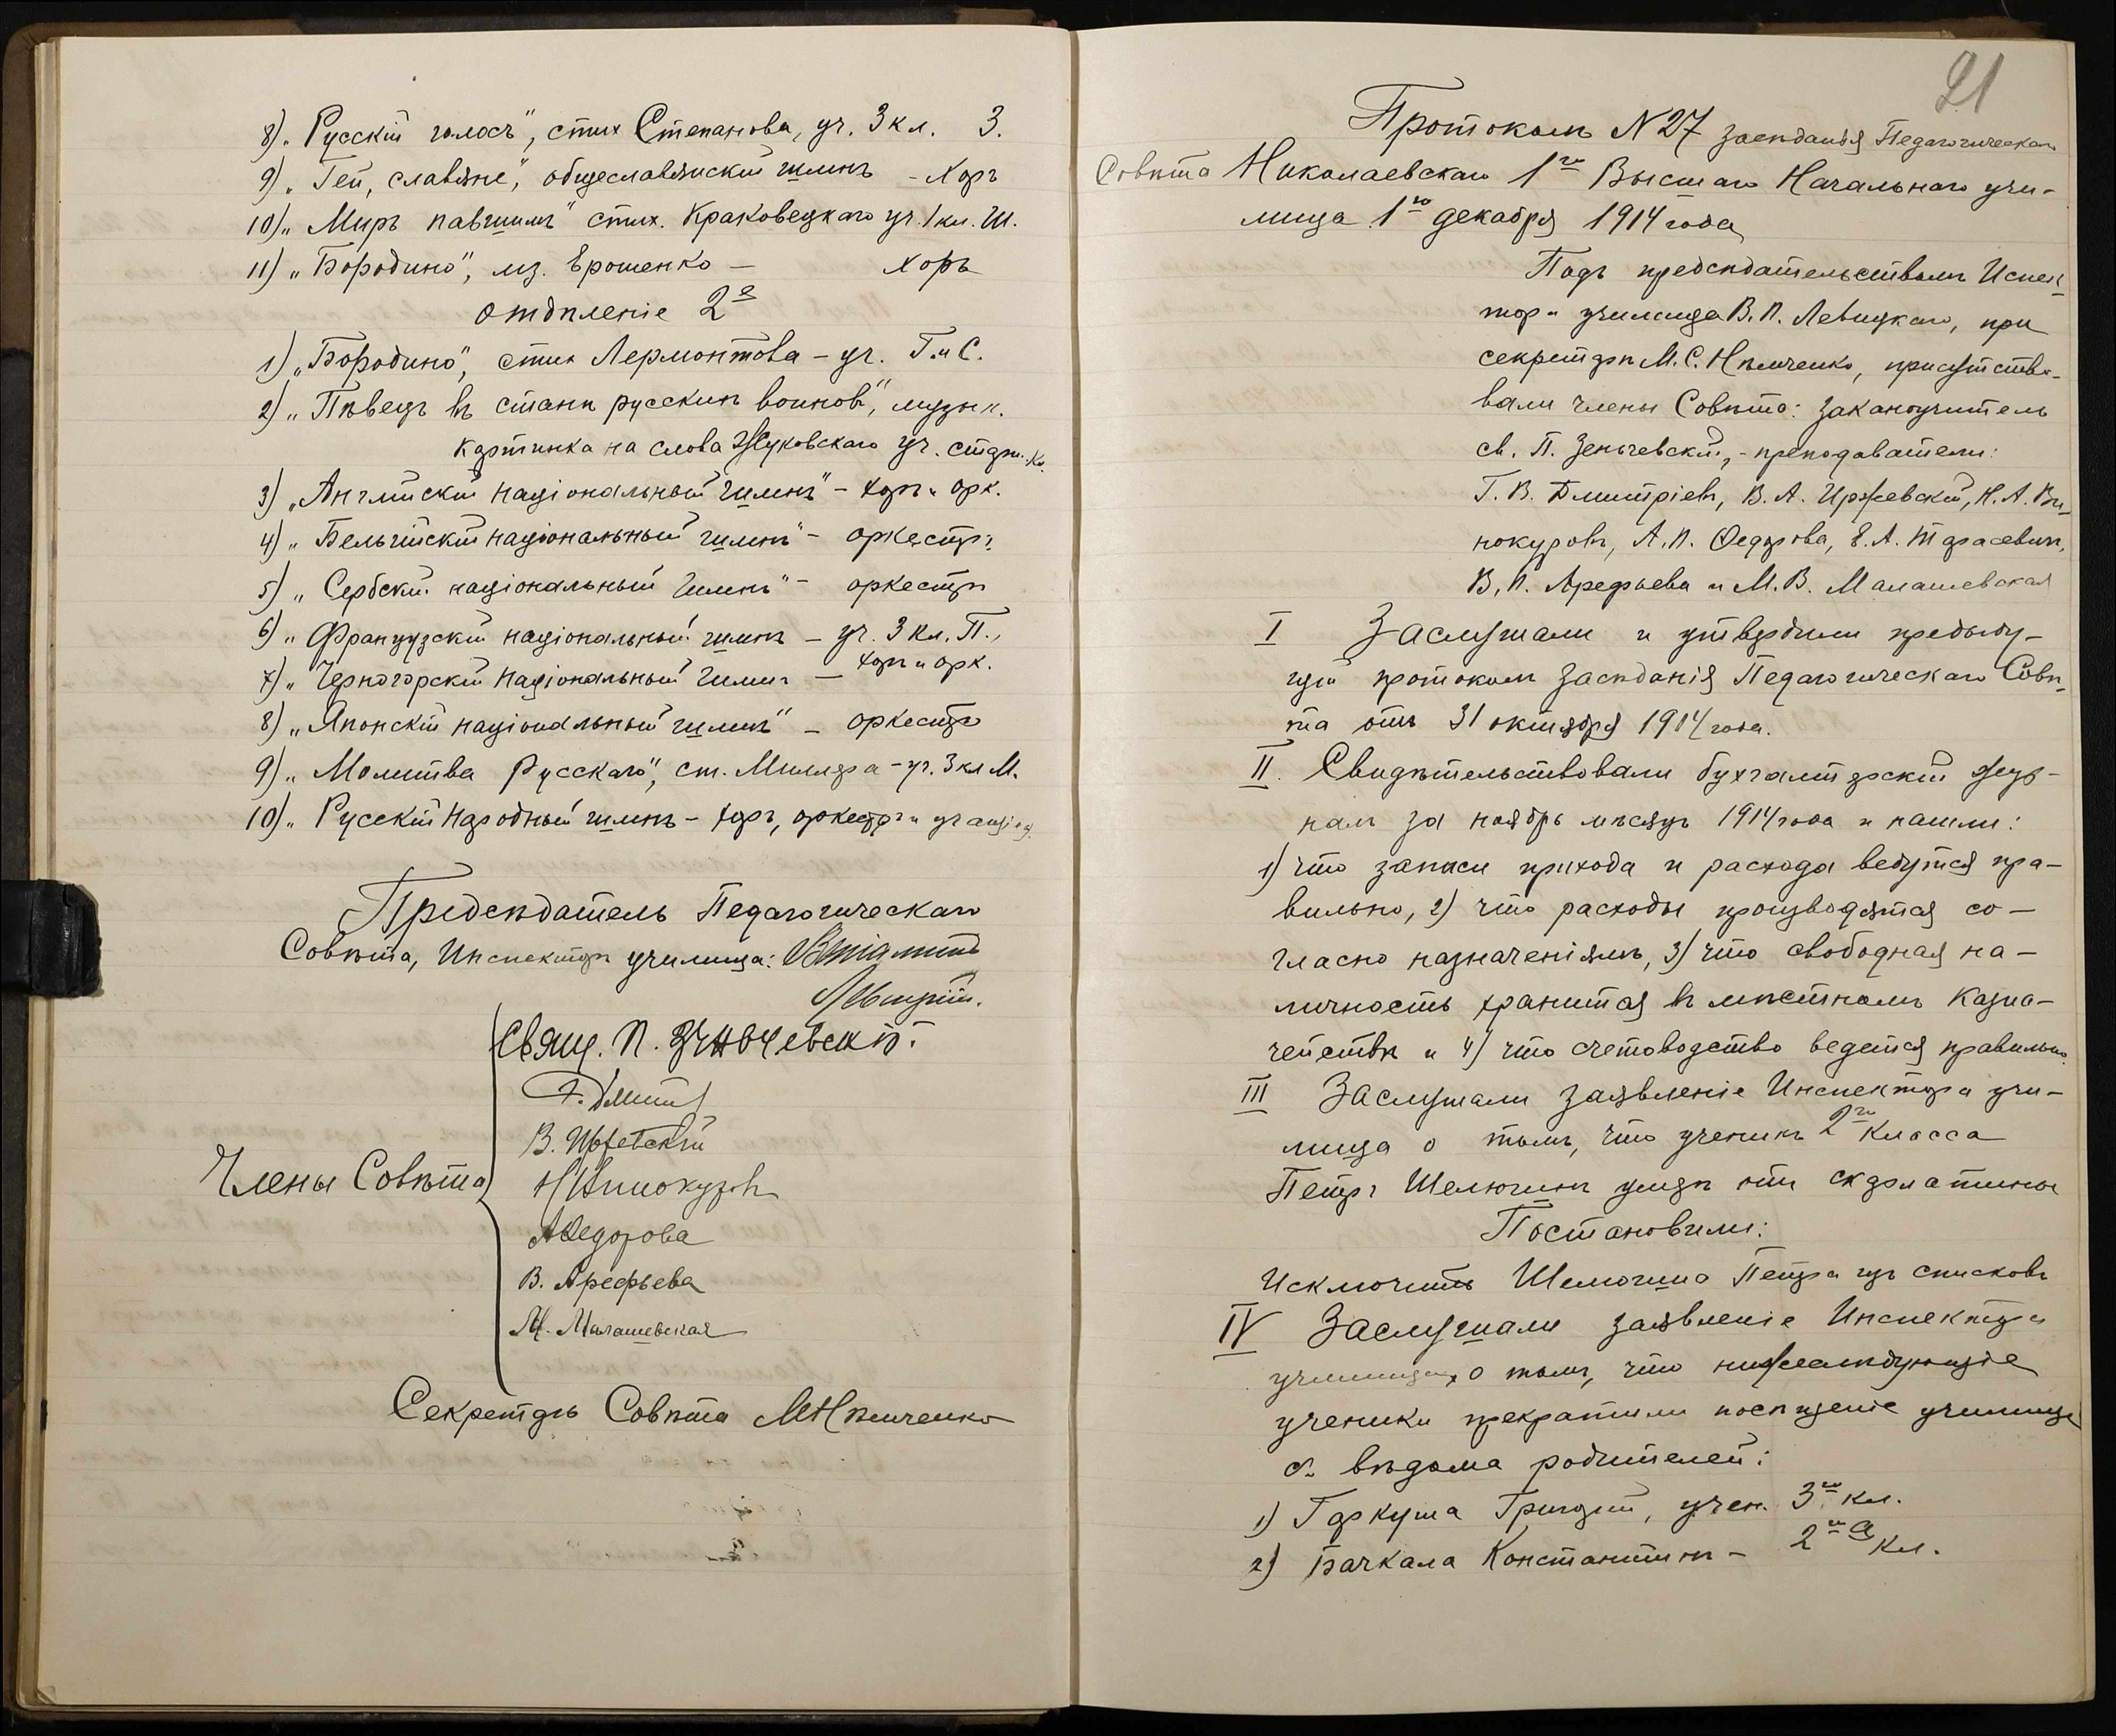 8) „Русскій голосъ", стих Степанова, уч. 3 кл. З.
9) „Гей, славяне", общеславянскій гимнъ - Хоръ
10) „Миръ павшимъ" стих. Краковецкаго уч. 1 кл. Ш.
11) „Бородино", муз. Ерошенко — Хоръ
отдѣленіе 2е
1) „Бородино", стих Лермонтова - уч. Г. и С.
2) „Пѣвецъ въ станѣ русскихъ воиновъ", музык.
картинка на слова Жуковскаго уч. старш. кл.
3) „Англійскій національный гимнъ" - хоръ и орк.
4) „Бельгійскій національный гимнъ" - оркестръ
5) „Сербскій національный гимнъ" - оркестръ
6) „Французскій національный гимнъ — уч. 3 кл. П.,
хоръ и орк.
7) „Черногорскій національный гимнъ —
8) „Японскій національный гимнъ" — оркестръ
9) „Молитва Русскаго", ст. Миллера - уч. 3 кл М.
10) „Русскій Народный гимнъ - хоръ, оркестръ и учащіеся
Предсѣдатель Педагогическаго
Совѣта, Инспекторъ училища: Виталій
Левицкій.
Свящ. П. Зеньчевскій.
Г. Дмит
В. Иржевскій
Н Винокуровъ
Члены Совѣта
А Ѳедорова
В. Арефьева
М. Малашевская
Секретарь Совѣта М Нѣмченко
21
Протоколъ N 27 засѣданія Педагогическаго
Совѣта Николаевскаго 1го Высшаго Начальнаго учи-
лища 1го декабря 1914 года
Подъ предсѣдательствомъ Испек-
тора училища В. П. Левицкаго, при
секретарѣ М. С. Нѣмченко, присутство-
вали члены Совѣта: законоучитель
св. П. Зеньчевскій, - преподаватели:
Г. В. Дмитріевъ, В. А. Иржевскій, Н. А. Ви-
нокуровъ, А. П. Ѳедорова, Е. А. Тарасевичъ,
В. П. Арефьева и М. В. Малашевская
I Заслушали и утвердили предыду-
щій протоколъ засѣданія Педагогическаго Совѣ-
та отъ 31 октября 1914 года.
II. Свидѣтельствовали бухгалтерскій жур-
налъ за ноябрь мѣсяцъ 1914 года и нашли:
1) что записи прихода и расхода ведутся пра-
вильно, 2) что расходы производятся со-
гласно назначеніямъ, 3) что свободная на-
личность хранится въ мѣстномъ казна-
чействѣ и 4) что счетоводство ведется правильно.
III Заслушали заявленіе Инспектора учи-
лища о томъ, что ученикъ 2го класса
Петръ Шелюгинъ умеръ отъ скарлатины
Постановили:
Исключить Шелюгина Петра изъ списковъ
IV Заслушали заявленіе Инспектора
училища, о томъ, что нижеслѣдующіе
ученики прекратили посѣщеніе училища
съ вѣдома родителей:
1) Гаркуша Григорій, учен. 3го кл.
2) Бачкала Константинъ - 2го а кл.